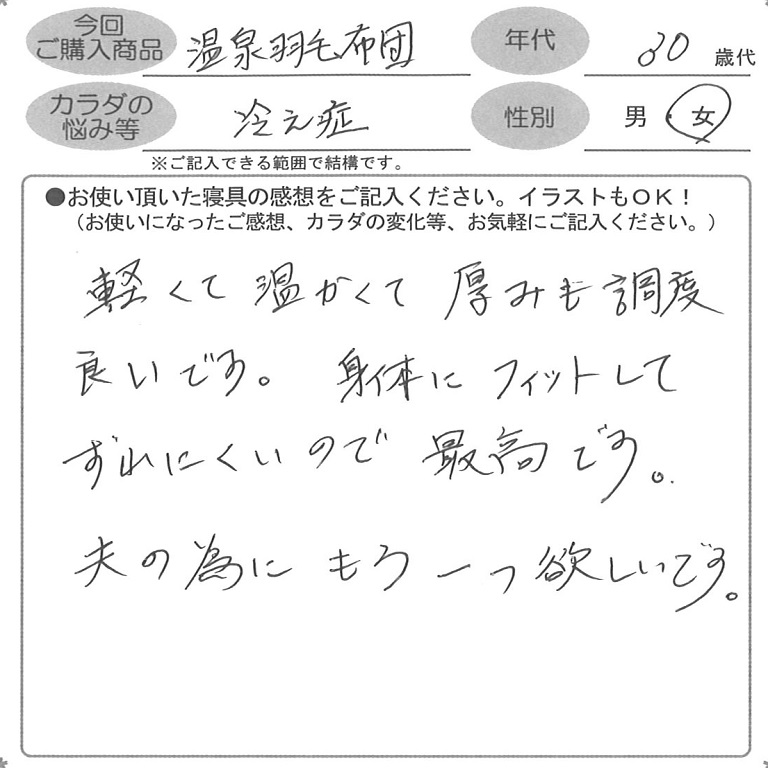 今回
ご購入商品 温泉羽毛布団 年代 30 歳代
カラダの
悩み等 冷え症 性別 男・女
※ご記入できる範囲で結構です。
●お使い頂いた寝具の感想をご記入ください。イラストもOK！
（お使いになったご感想、カラダの変化等、お気軽にご記入ください。）
軽くて 温かくて 厚みも調度
良いです。 身体に フィットして
ずれにくいので 最高です。
夫の為に もう一つ欲しいです。